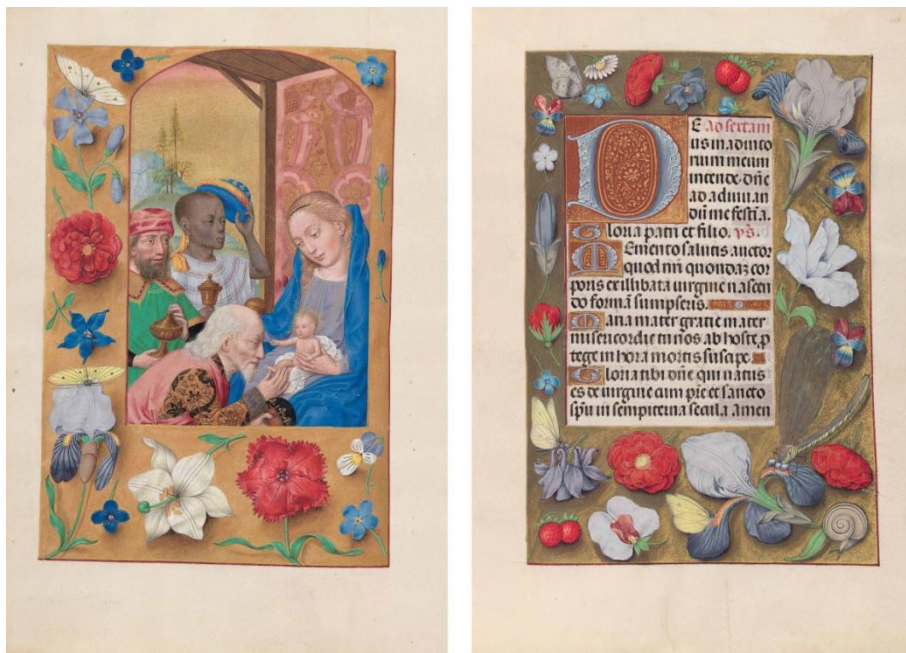 E ad sextam
us in adiuto
rium meum
intende. dñe
ad adiuuan
dũ me festĩa.
Gloria patri et filio. vs.
Memento salutis auctor
quod nrĩ quondaz cor
poris ex illibata uirgine nascen
do formã sumpseris.
Maria mater gratie mater
misericordie tu nos ab hoste, p
tege in hora mortis suscipe.
Gloria tibi dñe qui natus
es de uirgine cum pre et sancto
spũ in sempiterna secula amen